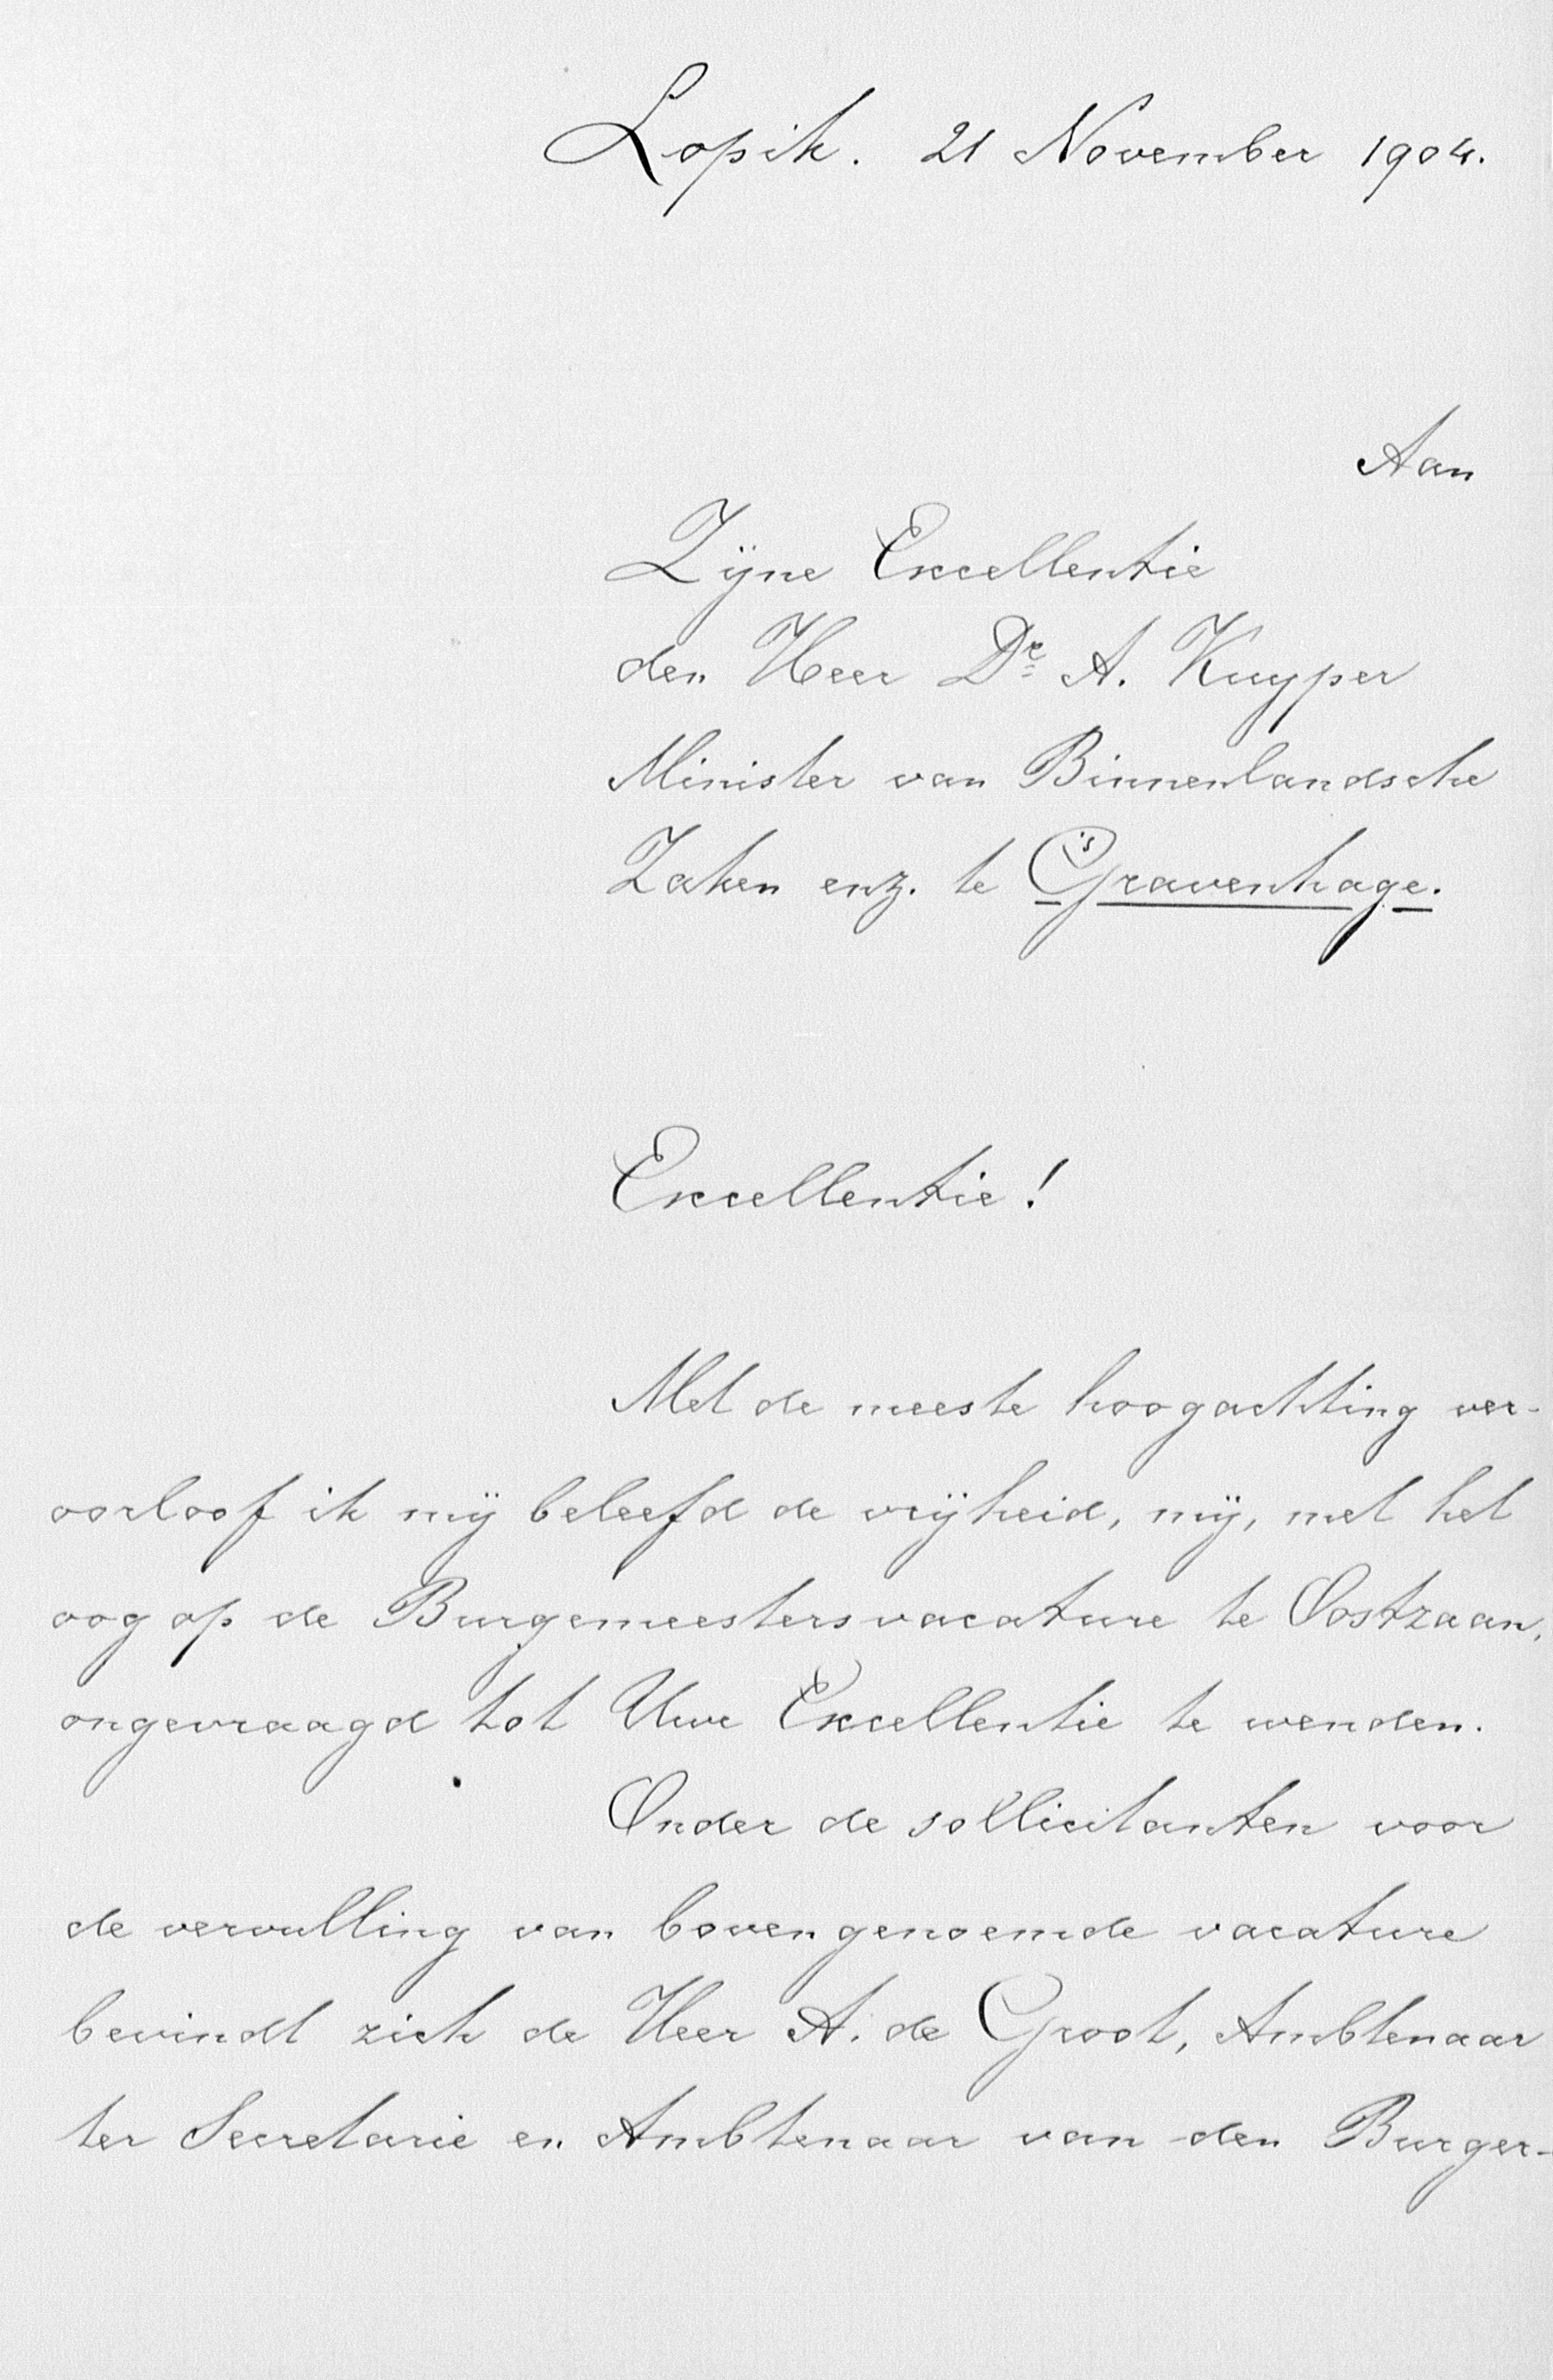 Lopik. 21 November 1904.
Aan
Zijne Excellentie
den Heer Dr A. Kuyper
Minister van Binnenlandsche
Zaken enz. te 's Gravenhage.
Excellentie!
Met de meeste hoogachting ver-
oorloof ik mij beleefd de vrijheid, mij, met het
oog op de Burgemeestersvacature te Oostzaan,
ongevraagd tot Uwe Excellentie te wenden.
Onder de sollicitanten voor
de vervulling van bovengenoemde vacature
bevindt zich de Heer A. de Groot, Ambtenaar
ter Secretarie en Ambtenaar van den Burger-